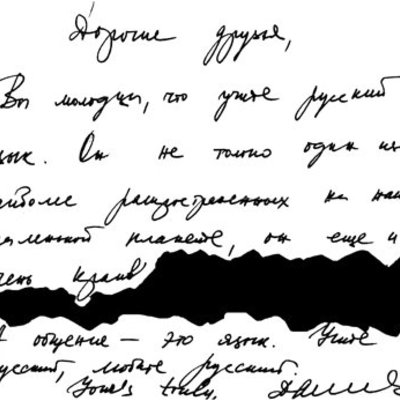 Дорогие друзья,
Вы молодцы, что учите русский
язык. Он не только один из
наиболее распространенных на наш
маленькой планете, он еще и
очень красив
А общение — это язык. Учите
русский, любите русский.
Yours truly,